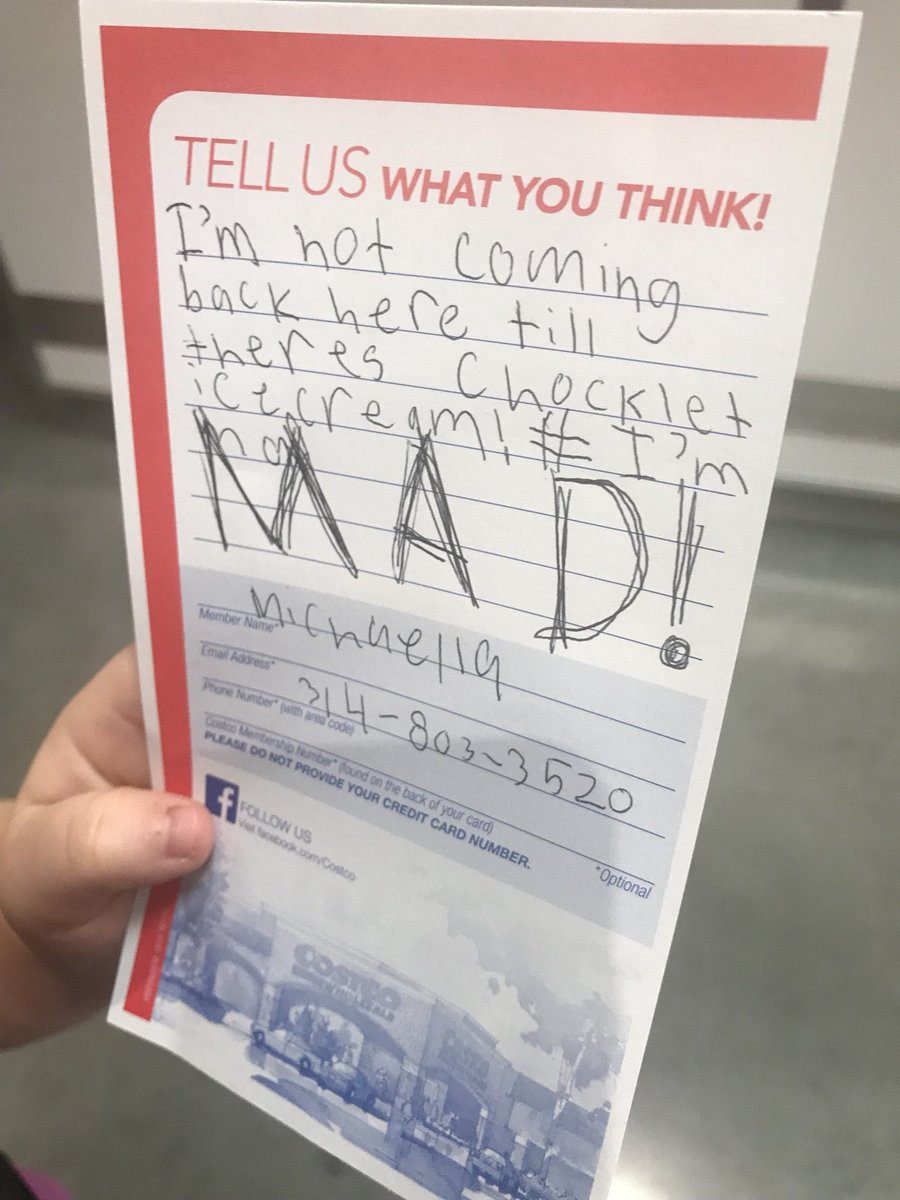 TELL US WHAT YOU THINK!
I'm not coming
back here till
theres Chocklet
icecream! # I'm
MAD!
Member Name*
Michaella
Email Address*
Phone Number* (with area code)
314-803-3520
Costco Membership Number* (found on the back of your card)
PLEASE DO NOT PROVIDE YOUR CREDIT CARD NUMBER.
*Optional
f
FOLLOW US
Visit facebook.com/Costco
COSTCO
WHOLESALE